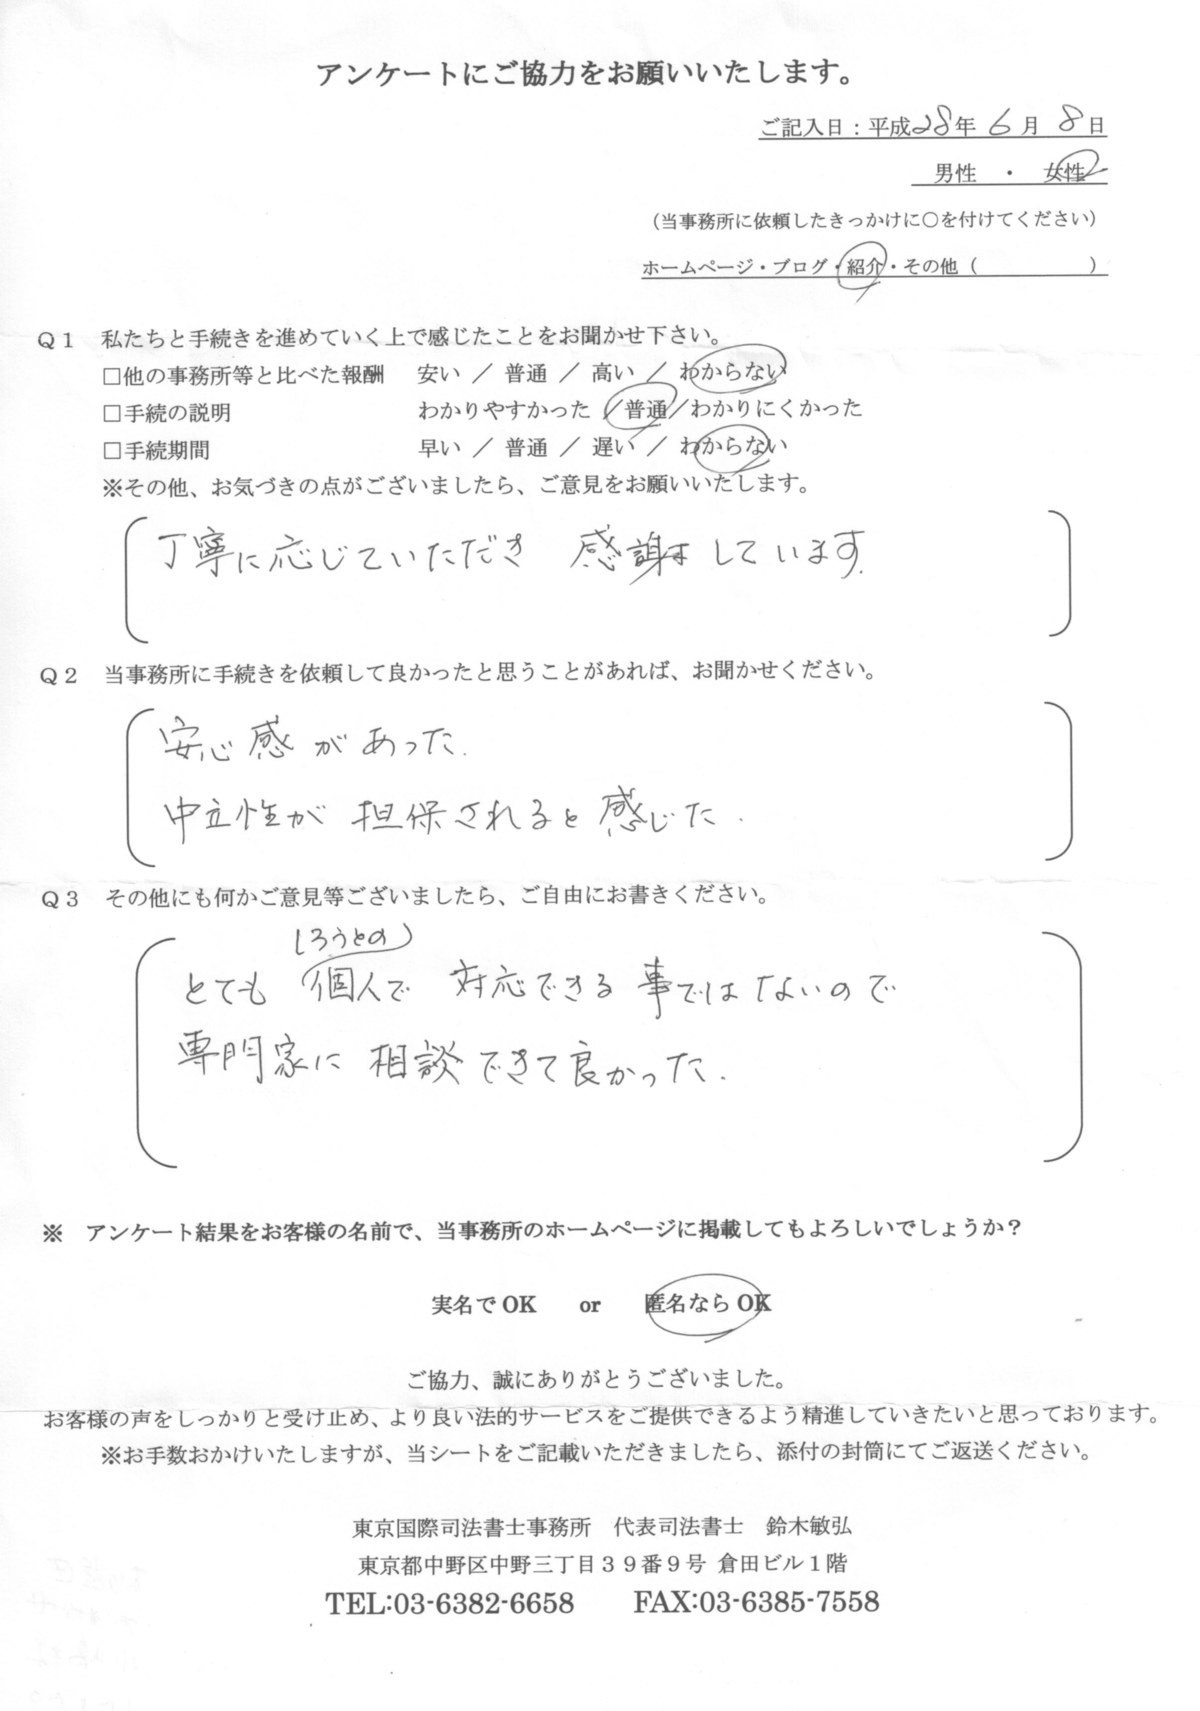 アンケートにご協力をお願いいたします。
ご記入日：平成28年 6月 8日
男性　・　女性
（当事務所に依頼したきっかけに○を付けてください）
ホームページ・ブログ・紹介・その他（　　　　　）
Q１　私たちと手続きを進めていく上で感じたことをお聞かせ下さい。
□他の事務所等と比べた報酬　安い ／ 普通 ／ 高い ／ わからない
□手続の説明　わかりやすかった ／普通／わかりにくかった
□手続期間　早い ／ 普通 ／ 遅い ／ わからない
※その他、お気づきの点がございましたら、ご意見をお願いいたします。
丁寧に応じていただき　感謝しています.
Q２　当事務所に手続きを依頼して良かったと思うことがあれば、お聞かせください。
安心感があった.
中立性が 担保されると感じた.
Q３　その他にも何かご意見等ございましたら、ご自由にお書きください。
しろうとの
とても 個人で 対応できる 事ではないので
専門家に 相談できて良かった.
※　アンケート結果をお客様の名前で、当事務所のホームページに掲載してもよろしいでしょうか？
実名でOK　or　匿名ならOK
ご協力、誠にありがとうございました。
お客様の声をしっかりと受け止め、より良い法的サービスをご提供できるよう精進していきたいと思っております。
※お手数おかけいたしますが、当シートをご記載いただきましたら、添付の封筒にてご返送ください。
東京国際司法書士事務所　代表司法書士　鈴木敏弘
東京都中野区中野三丁目３９番９号 倉田ビル１階
TEL:03-6382-6658　FAX:03-6385-7558